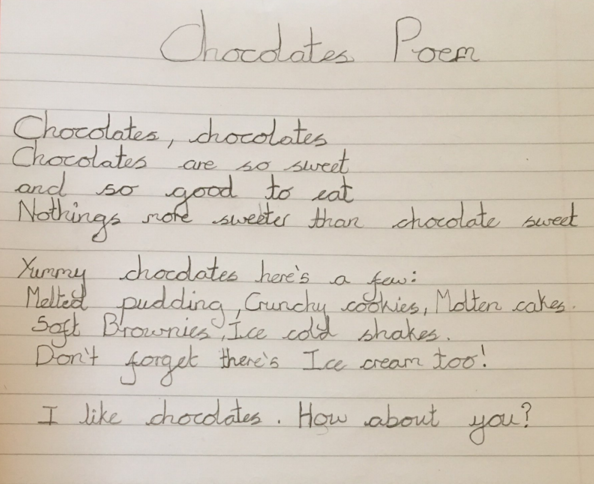 Chocolates Poem
Chocolates, chocolates
Chocolates are so sweet
and so good to eat
Nothings more sweeter than chocolate sweet
Yummy chocolates here's a few:
Melted pudding, Crunchy cookies, Molten cakes.
Soft Brownies, Ice cold shakes.
Don't forget there's Ice cream too!
I like chocolates. How about you?